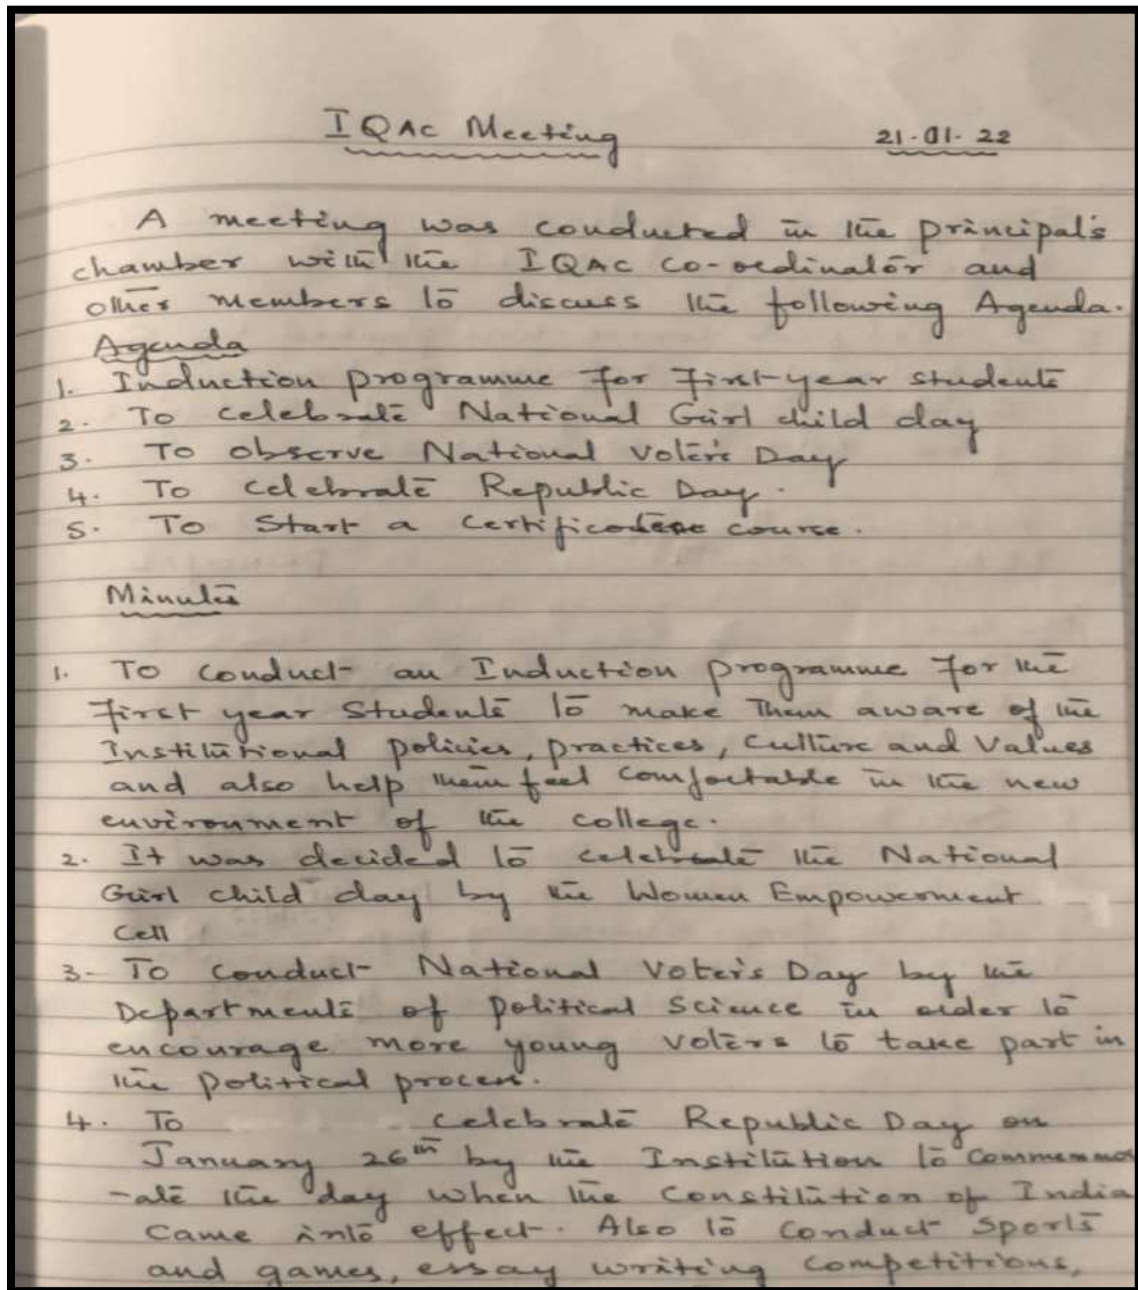 IQAC Meeting 21-01-22
A meeting was conducted in the principal's
chamber with the IQAC co-ordinator and
other members to discuss the following Agenda.
Agenda
1. Induction programme for first year students
2. To celebrate National Girl child day
3. To observe National Voter's Day
4. To celebrate Republic Day.
5. To Start a Certificate course.
Minutes
1. To conduct an Induction programme for the
first year Students to make them aware of the
Institutional policies, practices, culture and values
and also help them feel comfortable in the new
environment of the college.
2. It was decided to celebrate the National
Girl child day by the Women Empowerment
Cell
3. To conduct National Voter's Day by the
Departments of political Science in order to
encourage more young voters to take part in
the political process.
4. To celebrate Republic Day on
January 26th by the Institution to commemmor
-ate the day when the constitution of India
Came into effect. Also to conduct sports
and games, essay writing competitions,